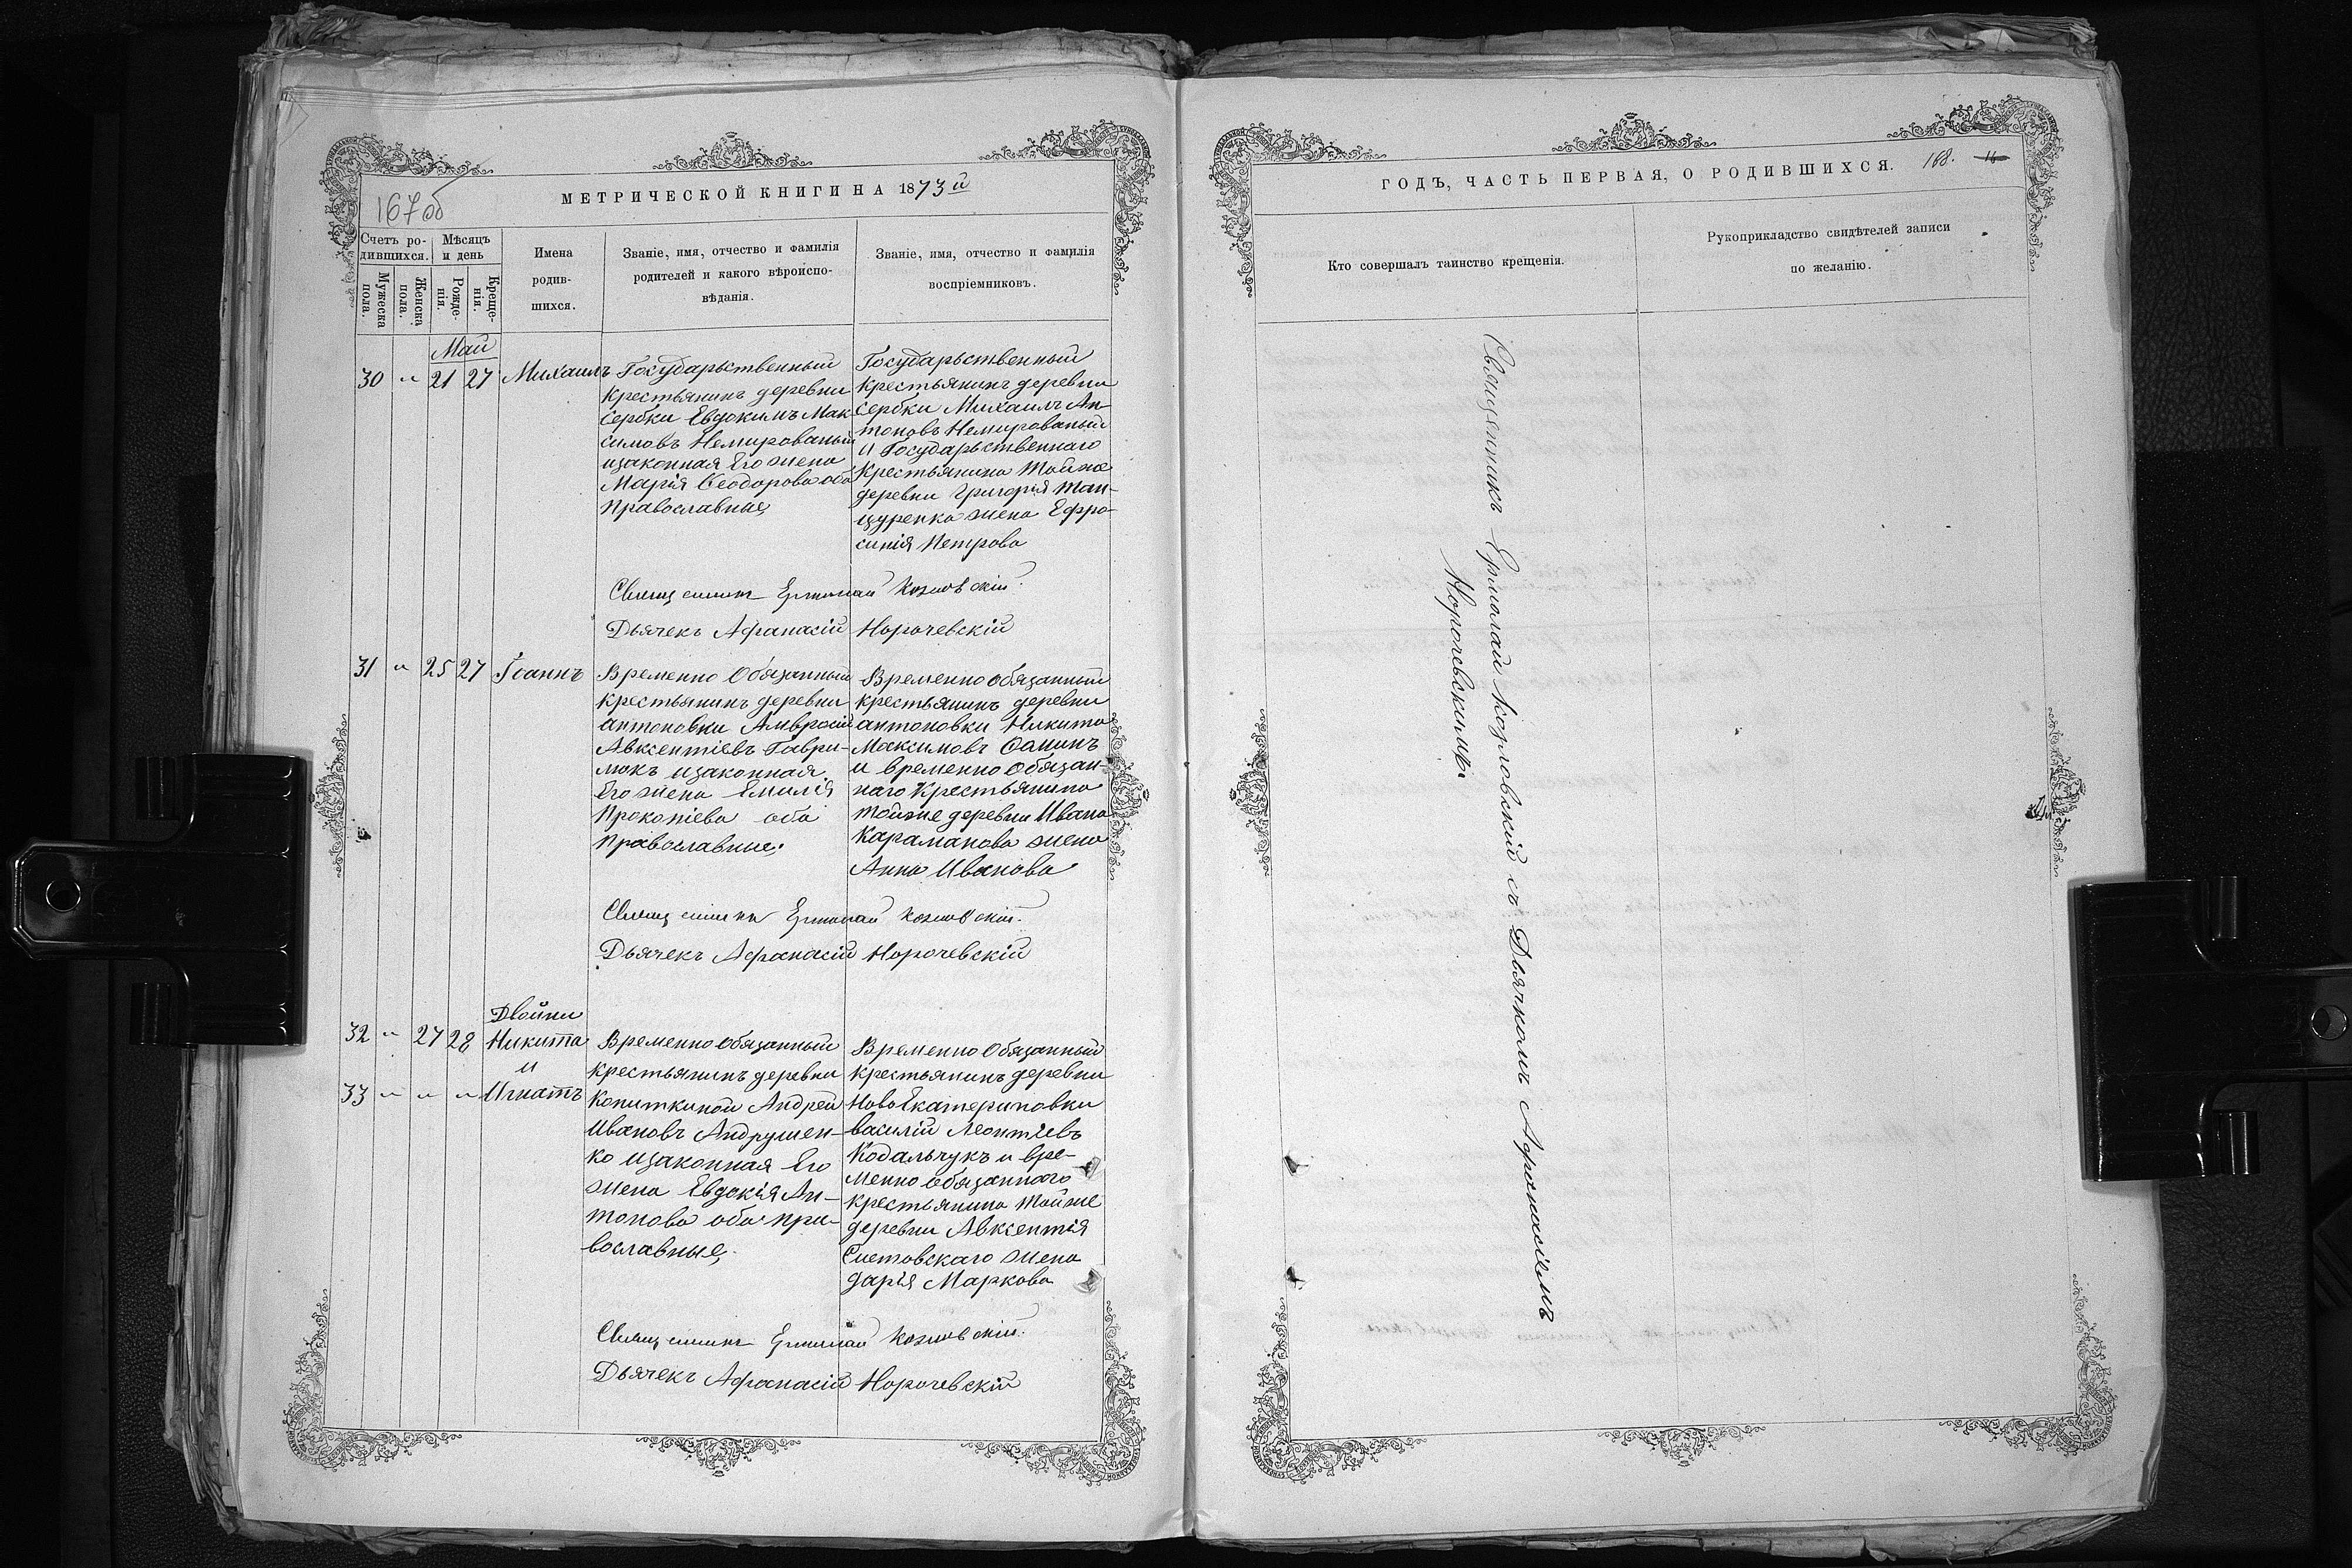 167 об
МЕТРИЧЕСКОЙ КНИГИ НА 1873 й
Счетъ ро-
дившихся.
Мѣсяцъ
и день
Мужеска
пола.
Женска
пола.
Рожде-
нія.
Креще-
нія.
Имена
родив-
шихся.
Званіе, имя, отчество и фамилія
родителей и какого вѣроиспо-
вѣданія.
Званіе, имя, отчество и фамилія
воспріемниковъ.
Май
30 " 21 27 Михаилъ
Государьственный
крестьянинъ деревни
Сербки Евдокимъ Мак
симовъ Немированый
изаконная Его жена
Марія Ѳеодорова оба
Православные,
Государьственный
крестьянинъ деревни
Сербки Михаилъ Ан-
тоновъ Немированый
и Государьственнаго
крестьянина тойже
деревни Григорія Ман-
цуренка жена Ефро-
синія Петрова
Священникъ Ермолай Козловскій
Дьячекъ Афанасій Норочевскій
31 " 25 27 Іоаннъ
Временно Обязанный
крестьянинъ деревни
антоновки Амвросій
Авксентіевъ Гаври-
люкъ изаконная
Его жена Емилія
Прокопіева оба
Православные;
Временно обязанный
крестьянинъ деревни
антоновки Никита
Максимовъ Ѳаминъ
и временно Обязан-
наго Крестьянина
тойже деревни Ивана
Караманова жена
Анна Иванова
Священникъ Ермолай Козловскій
Дьячекъ Афанасій Норочевскій
Двойни
32 " 27 28 Никита
и
33 " " " Игнатъ
Временно Обязанный
крестьянинъ деревни
Копиткиной Андрей
Ивановъ Андрушен-
ко изаконная Его
жена Евдокія Ан-
тонова оба пра-
вославные,
Временно Обязанный
Крестьянинъ деревни
Ново Екатериновки
василій Леонтіевъ
Ковальчукъ и вре-
менно обязаннаго
крестьянина тойже
деревни Авксентія
Снетовскаго жена
дарія Маркова
Священникъ Ермолай Козловскій
Дьячекъ Афанасій Норочевскій
168.
ГОДЪ, ЧАСТЬ ПЕРВАЯ, О РОДИВШИХСЯ.
Кто совершалъ таинство крещенія.
Рукоприкладство свидѣтелей записи
по желанію.
Священникъ Ермолай Козловскій съ Дьячкомъ Афанасіемъ
Норочевскимъ.